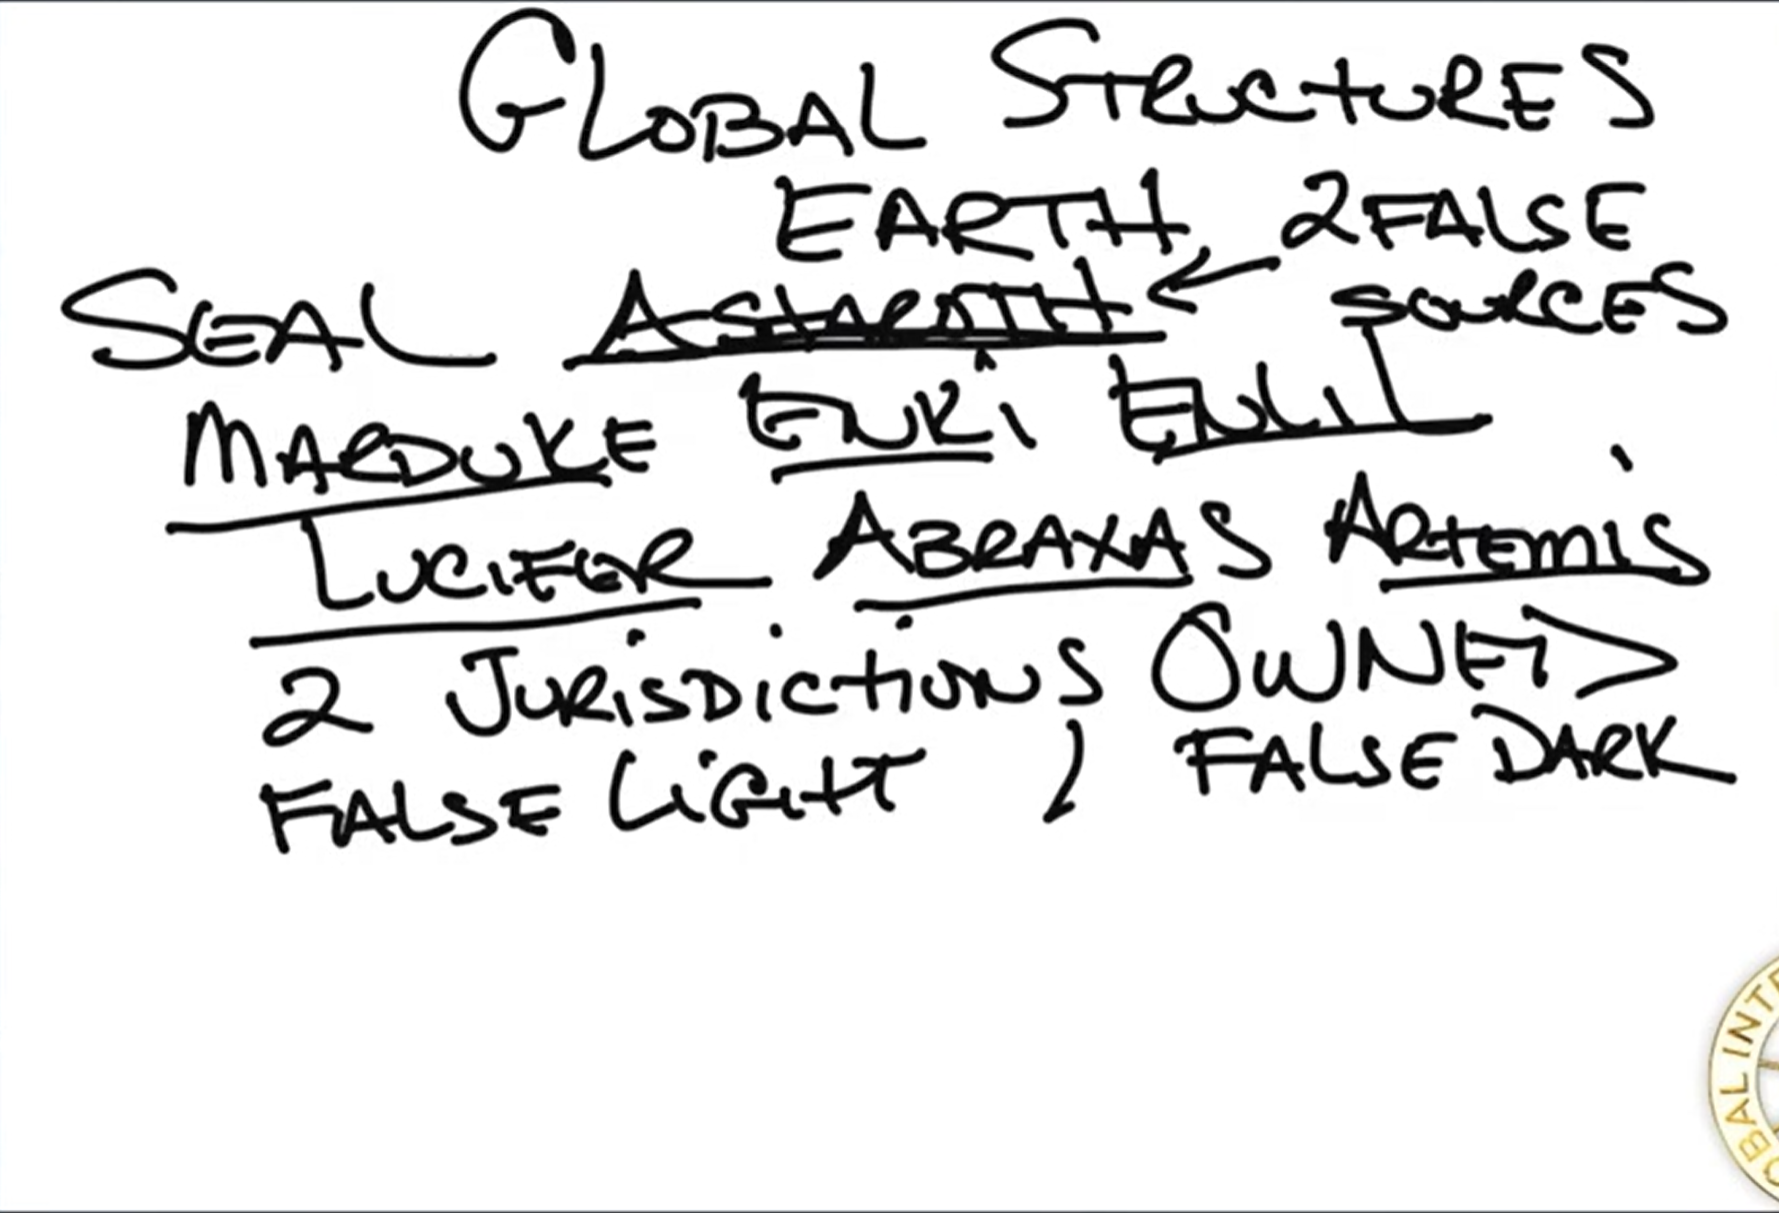 GLOBAL STRUCTURES
EARTH 2 FALSE
SEAL ASTAROTH SOURCES
MARDUKE ENKI ENLIL
LUCIFER ABRAXAS ARTEMIS
2 JURISDICTIONS OWNED
FALSE LIGHT / FALSE DARK
OBAL INTE